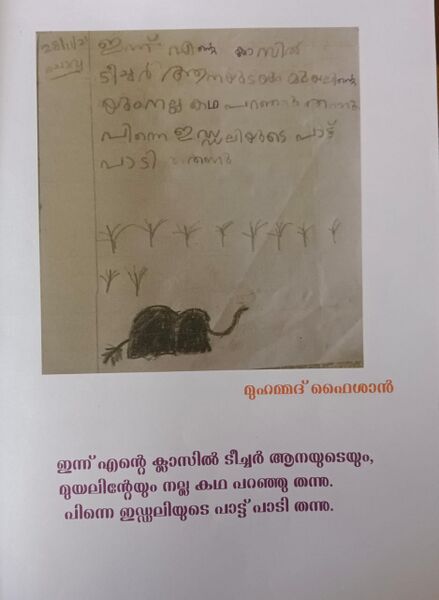 28/11/23
ചൊവ്വ
ഇന്ന് എന്റെ ക്ലാസിൽ
ടീച്ചർ ആനയുടെയും മുയലിന്റെ
യും നല്ല കഥ പറഞ്ഞു തന്നു
പിന്നെ ഇഡ്ഡലിയുടെ പാട്ട്
പാടി തന്നു
മുഹമ്മദ് ഫൈശാൻ
ഇന്ന് എന്റെ ക്ലാസിൽ ടീച്ചർ ആനയുടെയും,
മുയലിന്റേയും നല്ല കഥ പറഞ്ഞു തന്നു.
പിന്നെ ഇഡ്ഡലിയുടെ പാട്ട് പാടി തന്നു.